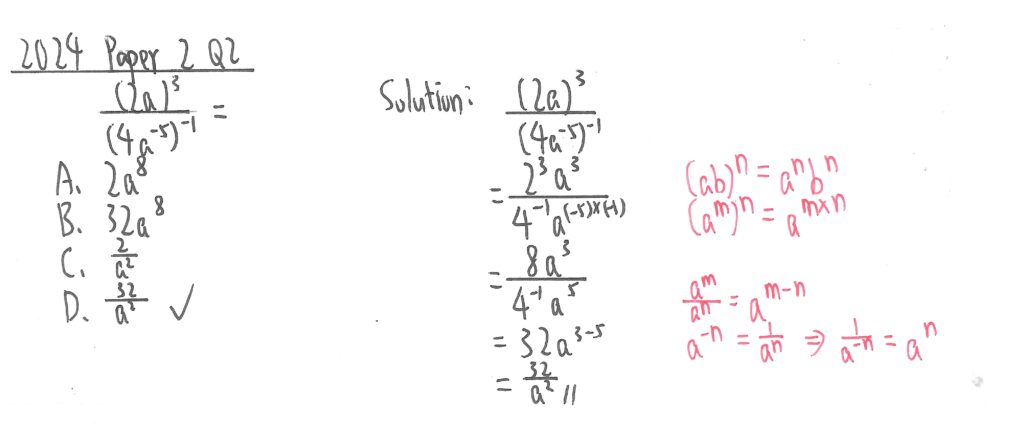 2024 Paper 2 Q2
(2a)³/(4a⁻⁵)⁻¹ =
A. 2a⁸
B. 32a⁸
C. 2/a²
D. 32/a² ✓
Solution: (2a)³/(4a⁻⁵)⁻¹
= 2³a³/4⁻¹a⁽⁻⁵⁾ˣ⁽⁻¹⁾
= 8a³/4⁻¹a⁵
= 32a³⁻⁵
= 32/a² //
(ab)ⁿ = aⁿbⁿ
(aᵐ)ⁿ = aᵐˣⁿ
aᵐ/aⁿ = aᵐ⁻ⁿ
a⁻ⁿ = 1/aⁿ ⇒ 1/a⁻ⁿ = aⁿ